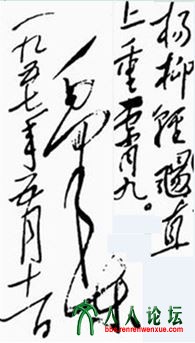 杨柳轻飏直
上重霄九。
毛泽东
一九五七年五月十一日
人人论坛
bbs.renrenwenxue.com